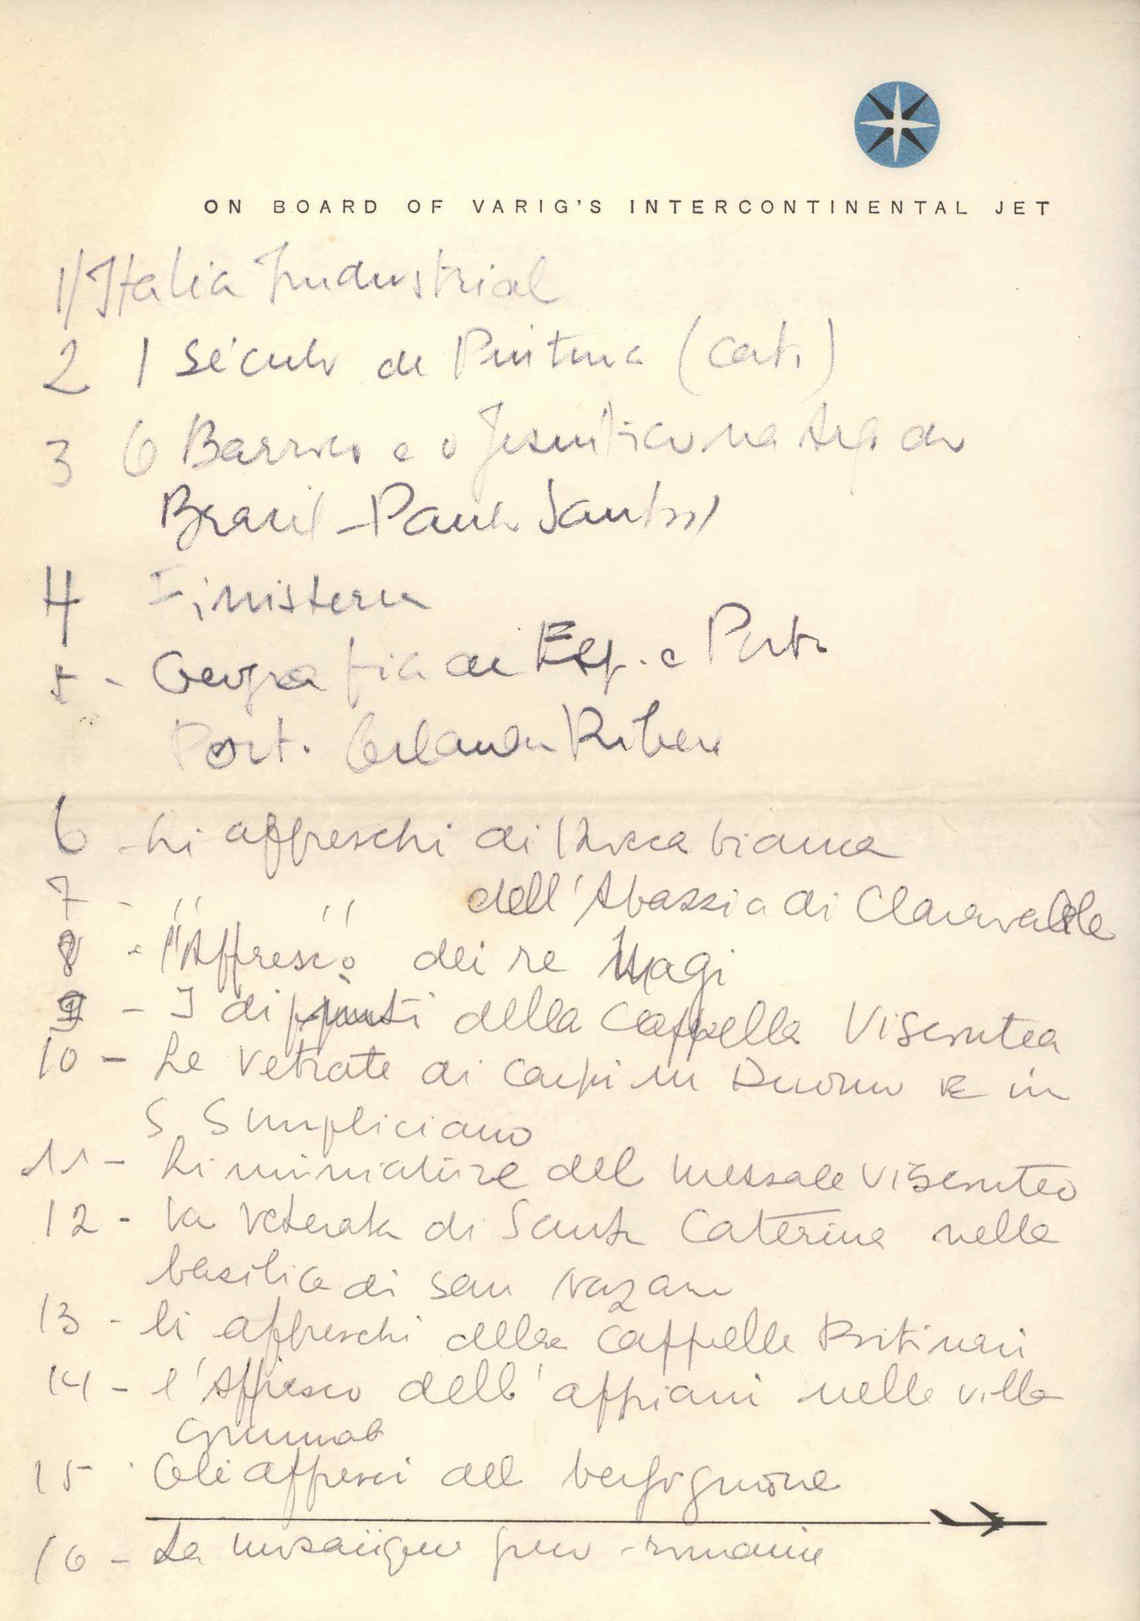 ON BOARD OF VARIG'S INTERCONTINENTAL JET
1/ Italia Industrial
2 1 século de Pintura (cat.)
3 O Barroco e o Jesuitico na Arq do
Brasil - Paulo Santos
4 Finisterra
5 - Geografia de Esp. e Port.
Port. Orlando Ribeiro
6 - Li affreschi di Rocca bianca
7 - " " dell'Abazzia di Claravalle
8 - "Affresco dei re Magi
9 - I dipinti della Cappella Viscontea
10 - Le vetrate di Carpi in Duomo e in
S Simpliciano
11 - Li miniature del messale visconteo
12 - La vetrata di Santa Caterina nella
basilica di San Nazaro
13 - li affreschi della cappella Portinari
14 - l'Affresco dell'appiani nella villa
15 - Gli affresci del bergognone
16 - La mosaïque greco-romaine